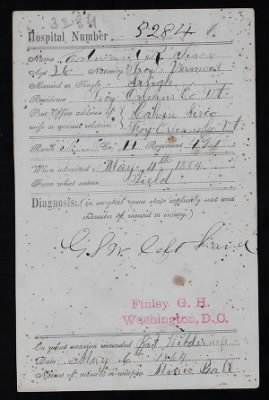 3284
Hospital Number 3284
Name
Age 26 Nativity Troy Vermont
Married or Single Single
Residence Troy Orleans Co Vt.
Post Office address of
wife or nearest relation Troy Orleans Co Vt
Rank Co. 11 Regiment
When admitted May 11th 1864
From what source Field
Diagnosis: (in surgical cases state explicitly seat and
character of wound or injury.)
G.S.W. left hand
Finley G. H.
Washington, D.C.
On what occasion wounded Bat. Wilderness
Date May 6th 1864
Nature of missile or weapon Minie Ball